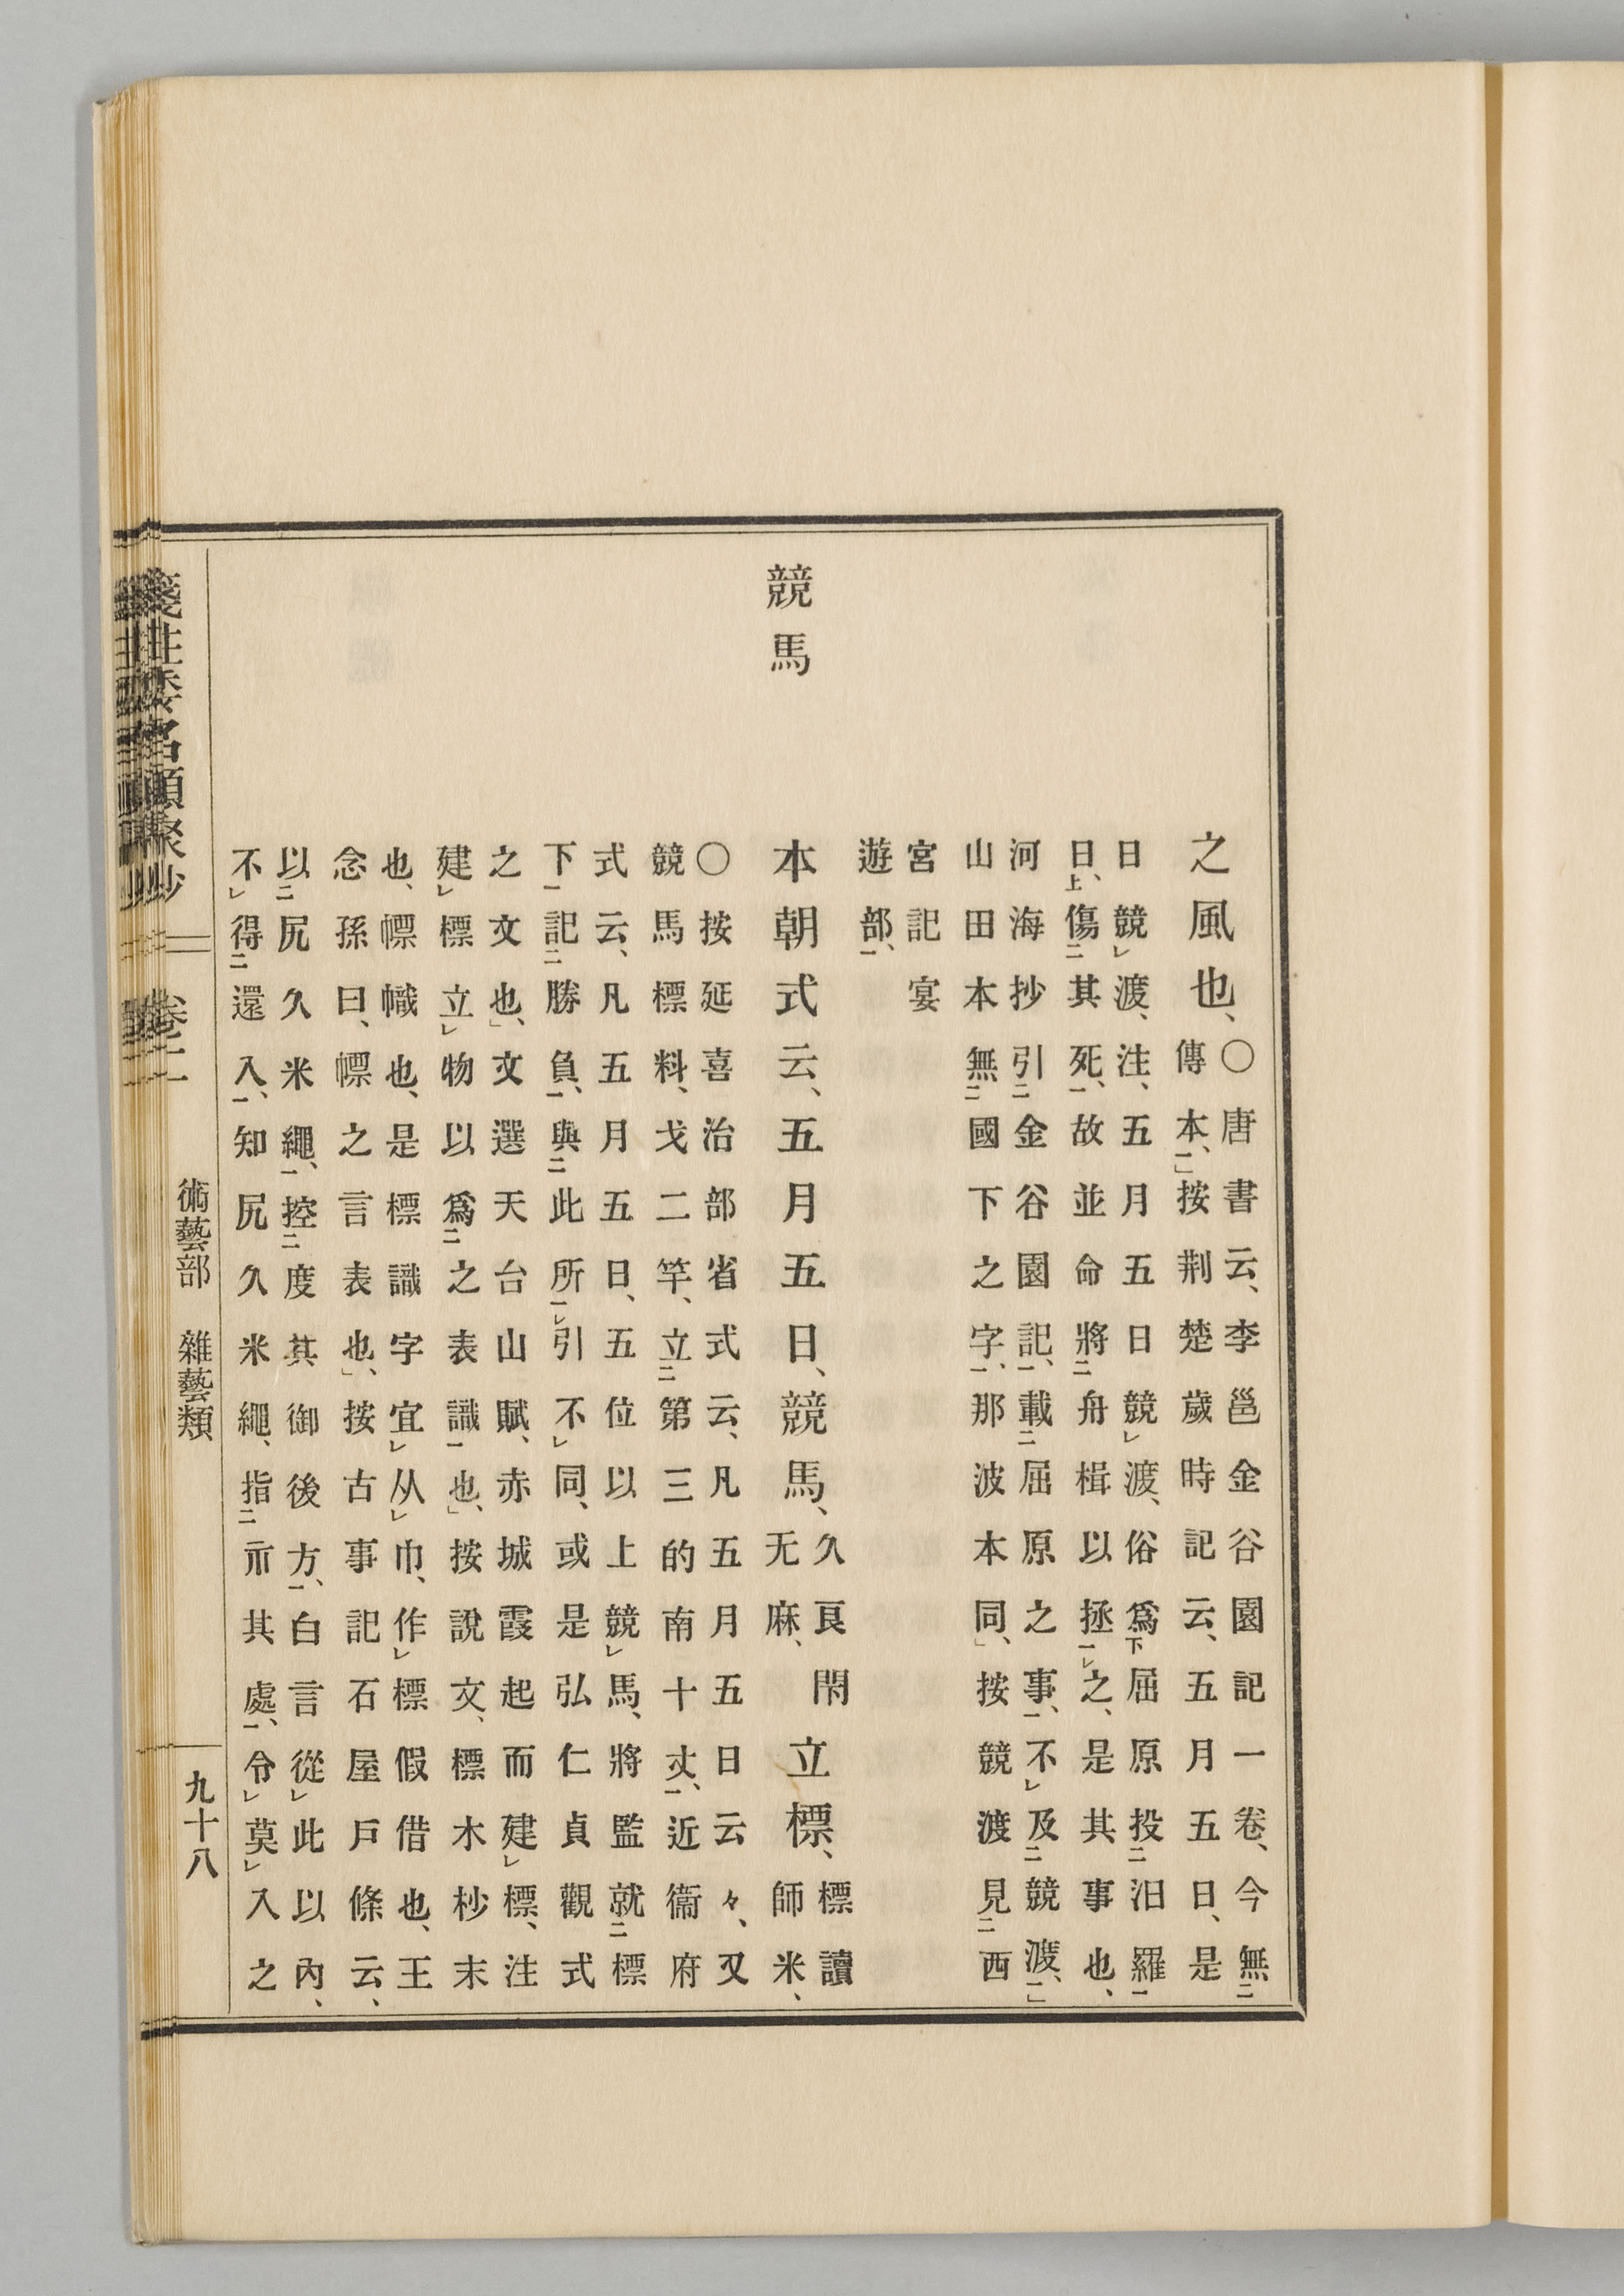 之風也、
〇唐書云、李邕金谷園記一卷、今無二
傳本、一」按荆楚歲時記云、五月五日、是
日競レ渡、注、五月五日競レ渡、俗爲下屈原投二汨羅一
日、上傷二其死、一故並命將二舟楫以拯一レ之、是其事也、
河海抄引二金谷園記、一載二屈原之事、一不レ及二競渡、一」
山田本無二國下之字、一那波本同、」按競渡見二西
宮記宴
遊部、一
競馬
本朝式云、五月五日、競馬、
久良閇
无麻、
立標、
標讀
師米、
〇按延喜治部省式云、凡五月五日云々、又
競馬標料、戈二竿、立二第三的南十丈、一近衞府
式云、凡五月五日、五位以上競レ馬、將監就二標
下一記二勝負、一與二此所一レ引不レ同、或是弘仁貞觀式
之文也、」文選天台山賦、赤城霞起而建レ標、注
建レ標立レ物以爲二之表識一也、」按說文、標木杪末
也、幖幟也、是標識字宜レ从レ巾、作レ標假借也、王
念孫曰、幖之言表也、」按古事記石屋戶條云、
以二尻久米繩、一控二度其御後方、一白言從レ此以內、
不レ得二還入、一知尻久米繩、指二示其處、一令レ莫レ入之
箋注倭名類聚抄
卷二
術藝部
雜藝類
九十八